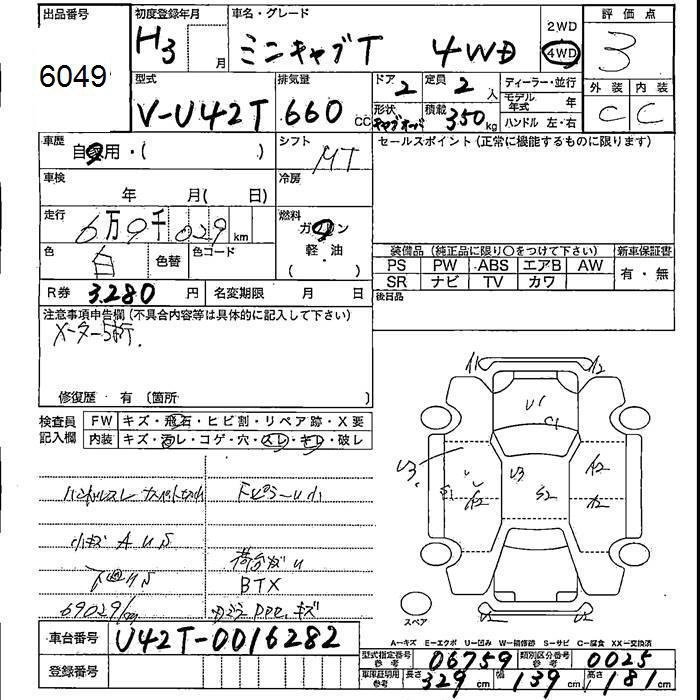 出品番号 初度登録年月 車名・グレード 評価点
6049 H3 月 ミニキャブT 4WD 2WD 4WD 3
型式 排気量 ドア 2 定員 2 人 ディーラー・並行 外装 内装
V-U42T 660 CC 形状 キャブオーバ 積載 350 kg モデル年式 年 C C
ハンドル 左・右
車歴 自家用・( ) シフト MT セールスポイント(正常に機能するものに限ります)
車検 年 月( 日) 冷房
走行 6万9千029 km 燃料 ガソリン
軽・油
( )
色 白 色替 色コード 装備品(純正品に限り○をつけて下さい) 新車保証書
PS PW ABS エアB AW 有・無
SR ナビ TV カワ
R券 3.280 円 名変期限 月 日 後日品
注意事項申告欄(不具合内容等は具体的に記入して下さい)
メーター5桁.
修復歴・有(箇所 )
検査員記入欄 FW キズ・飛石・ヒビ割・リペア跡・X要
内装 キズ・汚レ・コゲ・穴・スレ・キレ・破レ
小キズ AUS
BTX
69029km
A1 A2
U1 C1
U3 S1 A2 U3 S2 A2
A2
スペア
A-キズ E-エクボ U-凹み W-補修跡 S-サビ C-腐食 XX-交換済
車台番号 U42T-0016282
型式指定番号 参考 06759 類別区分番号 参考 0025
登録番号 車庫証明用 参考 長さ 329 cm 幅 139 cm 高さ 181 cm